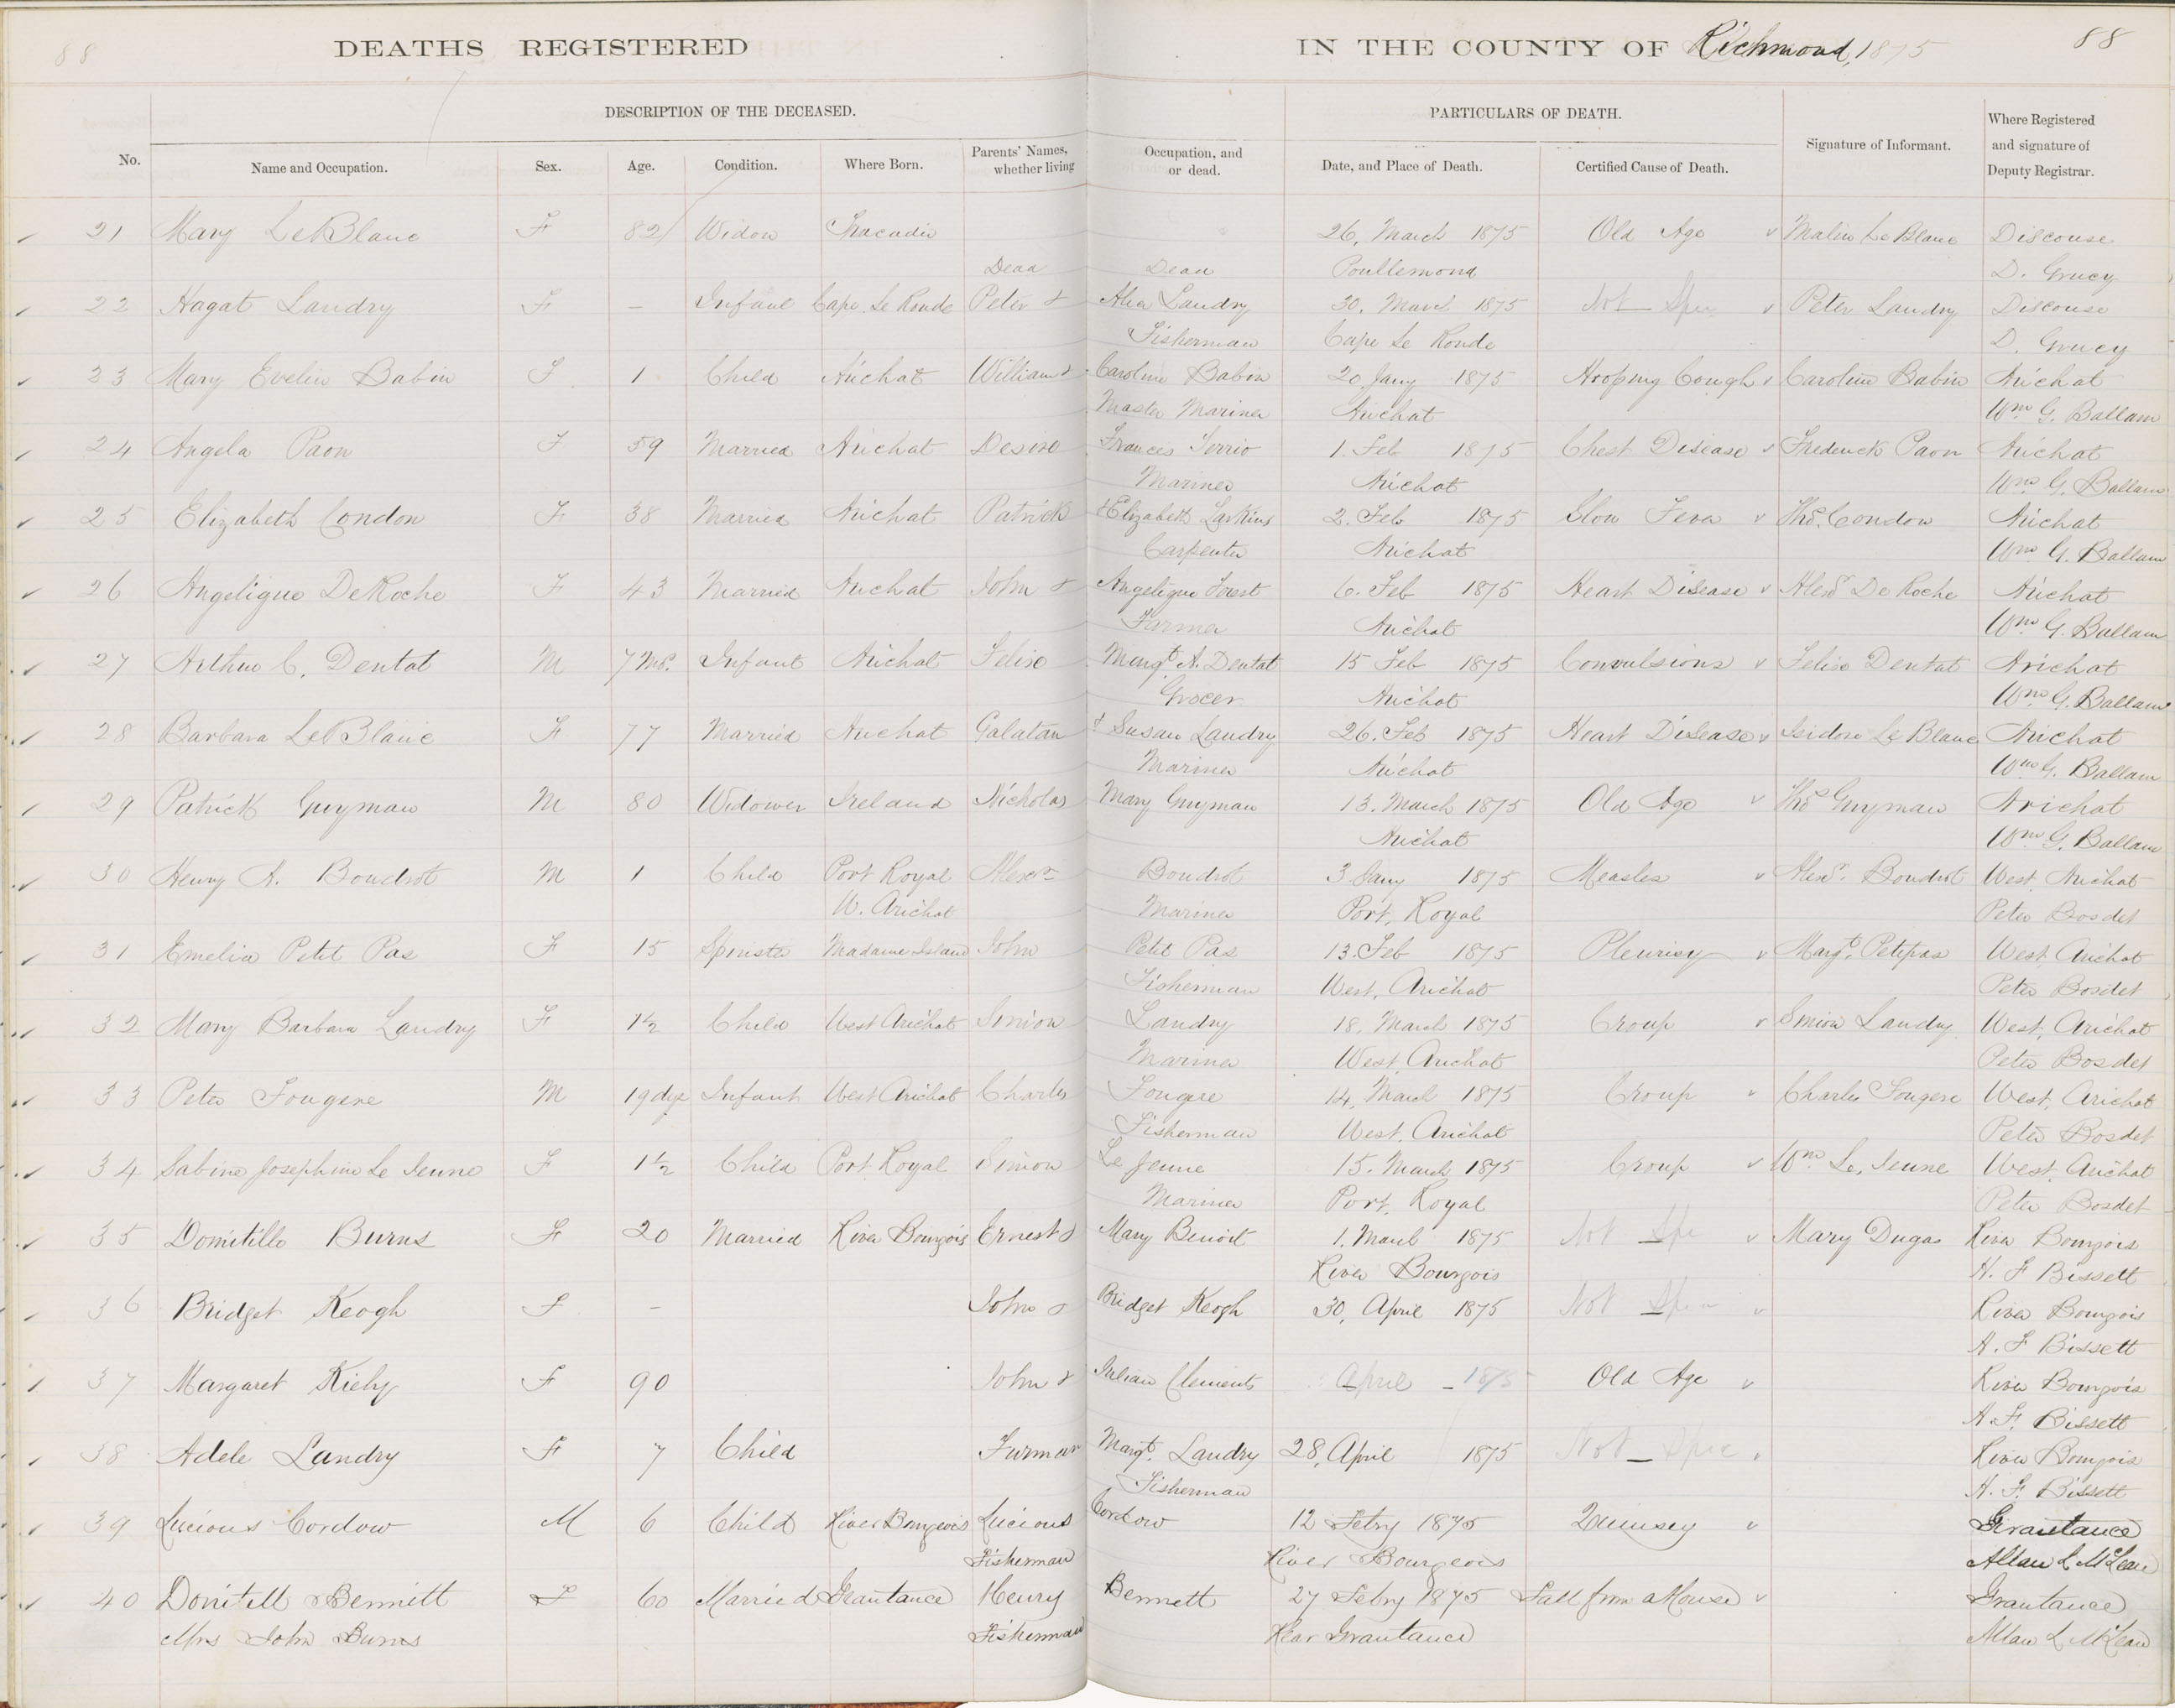 88 DEATHS REGISTERED IN THE COUNTY OF Richmond, 1875 88
DESCRIPTION OF THE DECEASED. PARTICULARS OF DEATH.
No. Name and Occupation. Sex. Age. Condition. Where Born. Parents' Names, whether living Occupation, and or dead. Date, and Place of Death. Certified Cause of Death. Signature of Informant. Where Registered and signature of Deputy Registrar.
21 Mary LeBlanc F 82 Widow Tracadie 26, March 1875 Old Age Le Blanc Discouse
Dead Dead D. Grucy
22 Hagat Landry F - Infant Cape Le Ronde Peter & Landry 30, March 1875 Not Spe Peter Landry Discouse
Fisherman Cape Le Ronde D. Grucy
23 Mary Evelin Babin F 1 Child Arichat William & Caroline Babin 20 Jany 1875 Hooping Cough Caroline Babin Arichat
Master Mariner Arichat Wm G. Ballam
24 Angela Paon F 59 Married Arichat Desire Frances Terrio 1. Feb 1875 Chest Disease Frederick Paon Arichat
Mariner Arichat Wm G. Ballam
25 Elizabeth Condon F 38 Married Arichat Patrick & Elizabeth Larkins 2. Feb 1875 Slow Fever Thos. Condon Arichat
Carpenter Arichat Wm G. Ballam
26 Angelique DeRoche F 43 Married Arichat John & Angelique Forest 6. Feb 1875 Heart Disease Alexr De Roche Arichat
Farmer Arichat Wm G. Ballam
27 Arthur C. Dentat M 7 Mos. Infant Arichat Felise Margt A. Dentat 15 Feb 1875 Convulsions Felise Dentat Arichat
Grocer Arichat Wm G. Ballam
28 Barbara LeBlanc F 77 Married Arichat Galatan & Susan Landry 26. Feb 1875 Heart Disease Isidore Le Blanc Arichat
Mariner Arichat Wm G. Ballam
29 Patrick Guyman M 80 Widower Ireland Nicholas Mary Guyman 13. March 1875 Old Age Thos Guyman Arichat
Arichat Wm G. Ballam
30 Henry A. Boudrot M 1 Child Port Royal Alexr Boudrot 3 Jany 1875 Measles Alexr. Boudrot West Arichat
W. Arichat Mariner Port, Royal Peter Bosdet
31 Emelia Petit Pas F 15 Spinster Madame Island John Petit Pas 13. Feb 1875 Pleurisy Margt. Petipas West Arichat
Fisherman West, Arichat Peter Bosdet
32 Mary Barbara Landry F 1½ Child West Arichat Simion Landry 18. March 1875 Croup Simion Landry West, Arichat
Mariner West, Arichat Peter Bosdet
33 Peter Fougere M 19 dys Infant West Arichat Charles Fougere 14. March 1875 Croup Charles Fougere West, Arichat
Fisherman West, Arichat Peter Bosdet
34 Sabine Josephine Le Jeune F 1½ Child Port Royal Simion Le Jeune 15. March 1875 Croup Wm Le, Jeune West, Arichat
Mariner Port, Royal Peter Bosdet
35 Domitille Burns F 20 Married River Bourgois Ernest & Mary Benoit 1. March 1875 Not Spe Mary Dugas River Bourgois
River Bourgois H. F Bissett
36 Bridget Keogh F - John & Bridget Keogh 30, April 1875 Not Spe River Bourgois
H. F Bissett
37 Margaret Kiely F 90 John & Julian Clements April - 1875 Old Age River Bourgois
H. F. Bissett
38 Adele Landry F 7 Child Furman Margt. Landry 28, April 1875 Not Spec River Bourgois
Fisherman H. F. Bissett
39 Lucious Cordow M 6 Child River Bourgeois Lucious Cordow 12 Febry 1875 Quinsey Grantance
Fisherman River Bourgeois Allan L McLean
40 Bennett F 60 Married Grantance Henry Bennett 27 Febry 1875 Fall from a House Grantance
Mrs John Burns Fisherman Near Grantance Allan L McLean